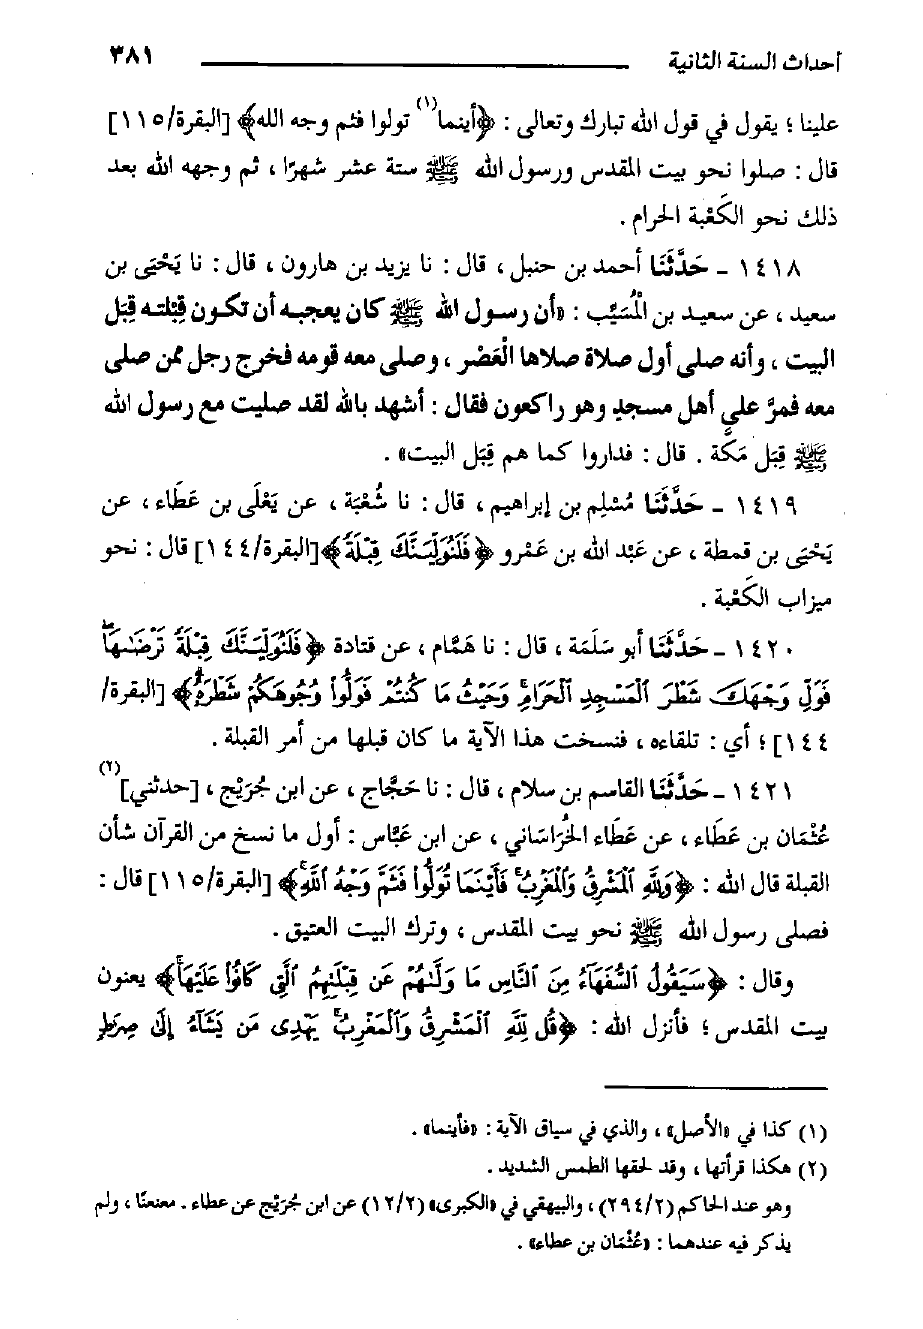 أحداث السنة الثانية ٣٨١
علينا ؛ يقول في قول الله تبارك وتعالى : ﴿أينما(١) تولوا فثم وجه الله﴾ [البقرة/١١٥]
قال : صلوا نحو بيت المقدس ورسول الله ﷺ ستة عشر شهرًا ، ثم وجهه الله بعد
ذلك نحو الكَعْبة الحرام .
١٤١٨ - حَدَّثَنَا أحمد بن حنبل ، قال : نا يزيد بن هارون ، قال : نا يَحْيَى بن
سعيد ، عن سعيد بن الْمُسَيَّب : «أن رسول الله ﷺ كان يعجبه أن تكون قِبْلته قِبَل
البيت ، وأنه صلى أول صلاة صلاها الْعَصْر ، وصلى معه قومه فخرج رجل ممن صلى
معه فمرَّ على أهل مسجدٍ وهو راكعون فقال : أشهد بالله لقد صليت مع رسول الله
ﷺ قِبَل مَكَّة . قال : فداروا كما هم قِبَل البيت» .
١٤١٩ - حَدَّثَنَا مُسْلِم بن إبراهيم ، قال : نا شُعْبَة ، عن يَعْلَى بن عَطَاء ، عن
يَحْيَى بن قمطة ، عن عَبْد الله بن عَمْرو ﴿فَلَنُوَلِّيَنَّكَ قِبْلَةً﴾ [البقرة/١٤٤] قال : نحو
ميزاب الكَعْبة .
١٤٢٠ - حَدَّثَنَا أبو سَلَمَة ، قال : نا هَمَّام ، عن قتادة ﴿فَلَنُوَلِّيَنَّكَ قِبْلَةً تَرْضَىٰهَا ۚ
فَوَلِّ وَجْهَكَ شَطْرَ ٱلْمَسْجِدِ ٱلْحَرَامِ ۚ وَحَيْثُ مَا كُنتُمْ فَوَلُّوا۟ وُجُوهَكُمْ شَطْرَهُۥ﴾ [البقرة/
١٤٤] ؛ أي : تلقاءه ، فنسخت هذا الآية ما كان قبلها من أمر القبلة .
١٤٢١ - حَدَّثَنَا القاسم بن سلام ، قال : نا حَجَّاج ، عن ابن جُرَيْج ، [حدثني](٢)
عُثْمَان بن عَطَاء ، عن عَطَاء الخُرَاسَاني ، عن ابن عَبَّاس : أول ما نسخ من القرآن شأن
القبلة قال الله : ﴿وَلِلَّهِ ٱلْمَشْرِقُ وَٱلْمَغْرِبُ ۚ فَأَيْنَمَا تُوَلُّوا۟ فَثَمَّ وَجْهُ ٱللَّهِ ۚ﴾ [البقرة/١١٥] قال :
فصلى رسول الله ﷺ نحو بيت المقدس ، وترك البيت العتيق .
وقال : ﴿سَيَقُولُ ٱلسُّفَهَآءُ مِنَ ٱلنَّاسِ مَا وَلَّىٰهُمْ عَن قِبْلَتِهِمُ ٱلَّتِى كَانُوا۟ عَلَيْهَا ۚ﴾ يعنون
بيت المقدس ؛ فأنزل الله : ﴿قُل لِّلَّهِ ٱلْمَشْرِقُ وَٱلْمَغْرِبُ ۚ يَهْدِى مَن يَشَآءُ إِلَىٰ صِرَٰطٍ
(١) كذا في «الأصل» ، والذي في سياق الآية : «فأينما» .
(٢) هكذا قرأتها ، وقد لحقها الطمس الشديد .
وهو عند الحاكم (٢٩٤/٢) ، والبيهقي في «الكبرى» (١٢/٢) عن ابن جُرَيْج عن عطاء . معنعنًا ، ولم
يذكر فيه عندهما : «عُثْمَان بن عطاء» .